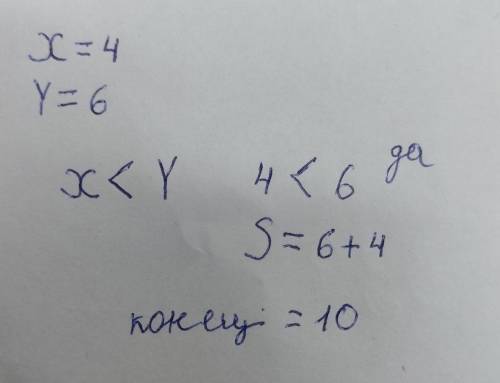 X=4
Y=6
X<Y 4<6 да
S=6+4
конец =10